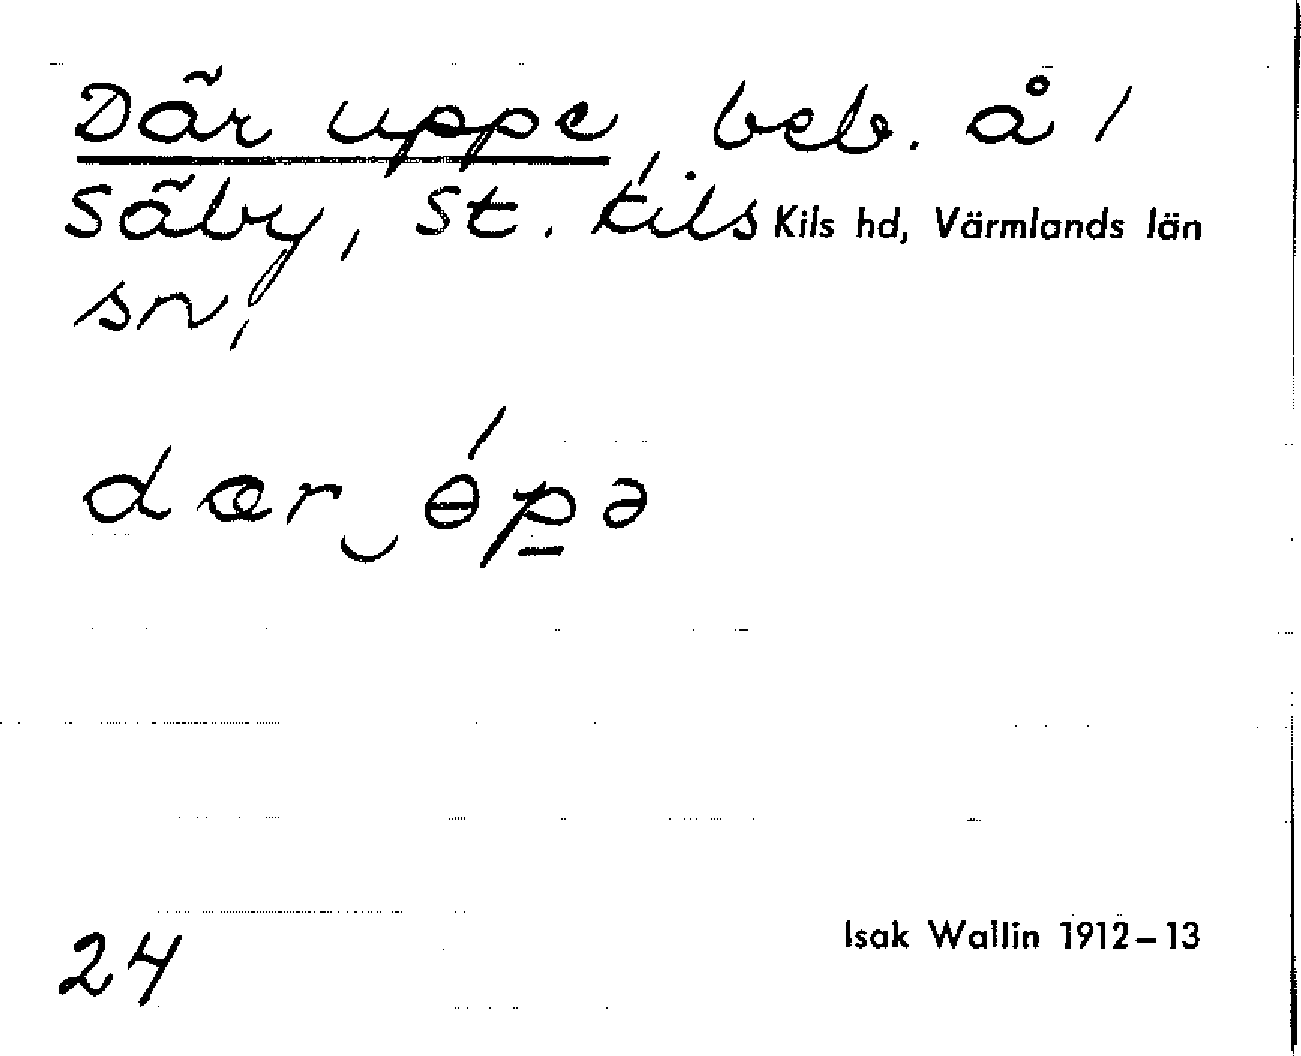 Där uppe, beb. å /
Säby, St. Kils Kils hd, Värmlands län
sn,
dær‿ɵ́p̲ə
24
Isak Wallin 1912–13